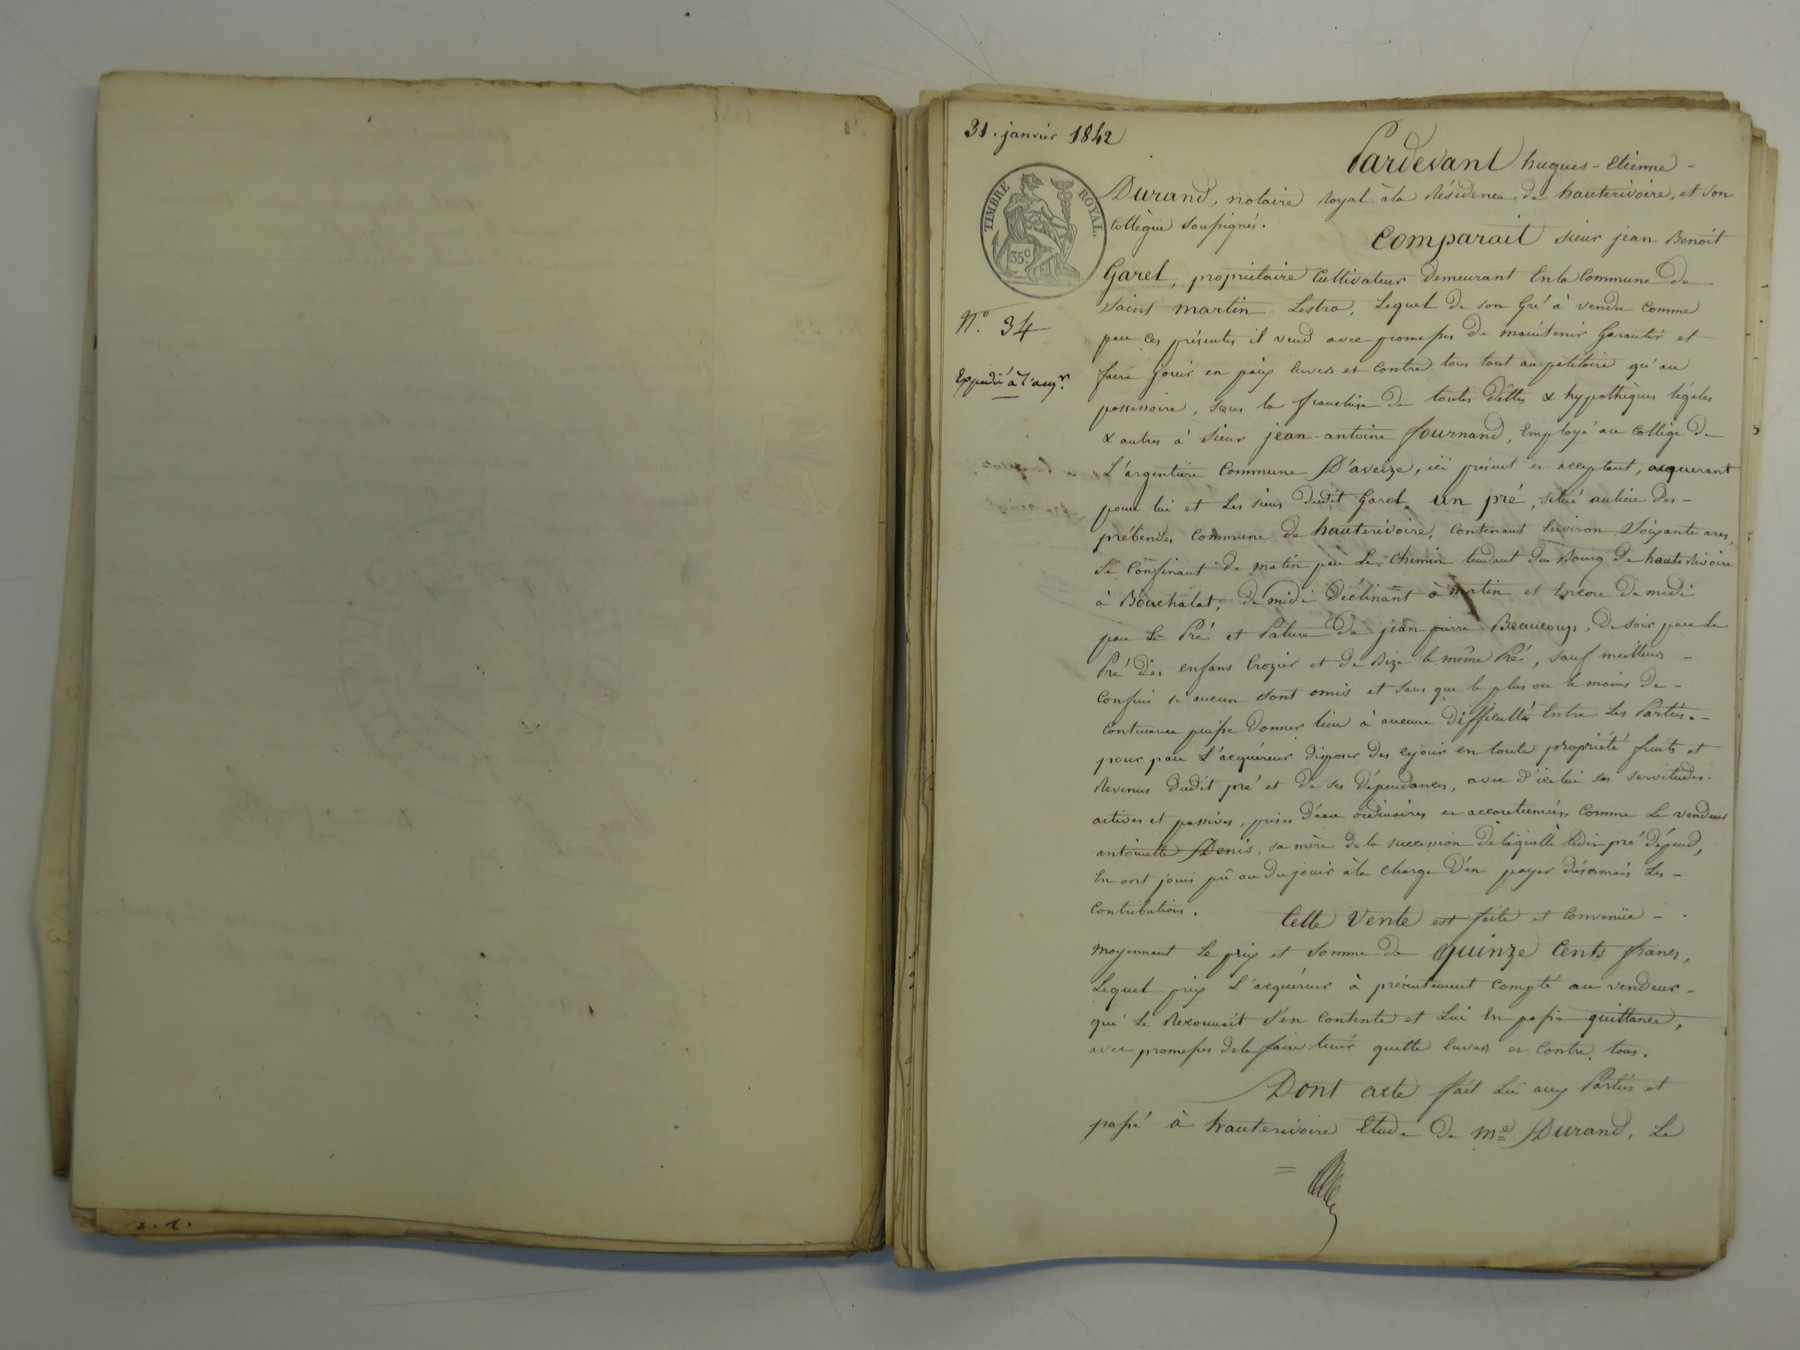 31. janvier 1842
TIMBRE ROYAL.
35c
N.o 34
Expédié à l'acqr.
Pardevant hugues-Etienne-
Durand, notaire royal à la Résidence de hauterivoire, et son
Collègue soussignés.
Comparait sieur jean Benoit
Garel, propriétaire Cultivateur demeurant En la Commune de
Saint Martin Lestra, Lequel de son Gré à vendu comme
par ces présentes il vend avec promesses de maintenir Garantir et
faire jouir en paix Envers et Contre tous tout au petitoire qu'au
possessoire, sous la franchise de toutes Dettes & hypothèques légales
& autres à Sieur jean-antoine fournand, Employé au Collège de
L'argentière Commune D'aveize, ici présent et acceptant, acquerant
pour lui et Les siens dudit Garel, un pré, situé au lieu des-
prébendes Commune de hauterivoire, contenant Environ Soixante ares,
Se Confinant de matin par Le Chemin tendant du Bourg De hauterivoire
à Bouchalat, de midi Déclinant à matin et Encore De midi
par Le Pré et Pature De jean pierre Beaucoup, De soir par Le
Pré des enfans Crozier et de Bize le même Pré, sauf meilleurs-
Confins si aucun sont omis et sans que le plus ou le moins De-
Contenance puisse Donner lieu à aucune difficultés Entre Les Parties.-
pour par L'acquéreur disposer Des cejour en toute propriété fruits et
Revenus dudit pré et De ses Dépendances, avec D'icelui ses servitudes.
actives et passives, prises D'eau ordinaires et accoutumées Comme Le vendeur
antoinette Denis, sa mère de la succession De laquelle ledit pré Dépend,
En ont joui pû ou du jouir à la Charge D'en payer Désormais Les-
Contributions.
Cette Vente est faite et Convenüe-
Moyennant Le prix et Somme de quinze Cents francs,
Lequel prix L'acquéreur à présentement Compté au vendeur-
qui Le Reconnait S'en Contente et Lui En passe quittance,
avec promesses de le faire tenir quitte Envers et Contre tous.
Dont acte fait Lu aux Parties et
passé à hauterivoire Etude De Me Durand, Le